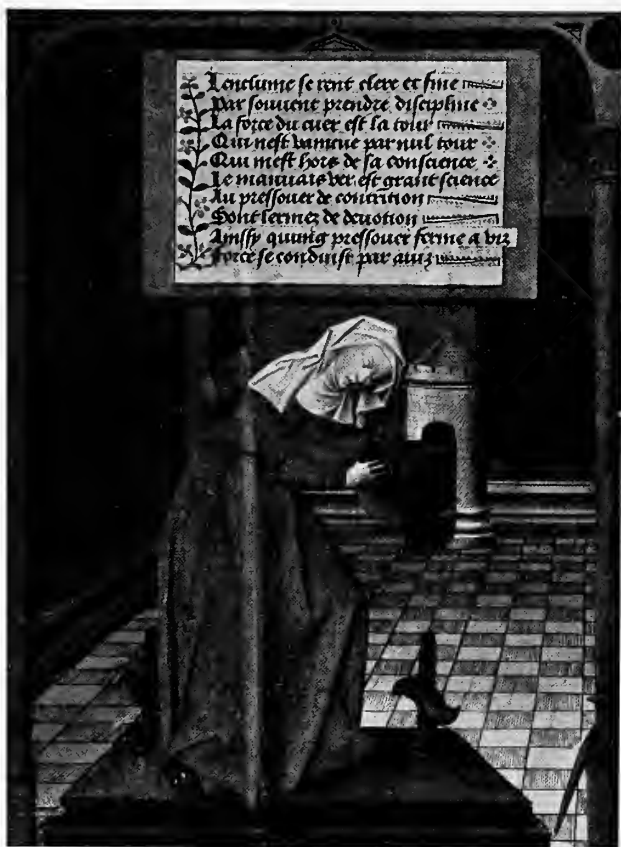 Lenclume se rent clere et fine
Par souvent prendre discipline
La force du cuer est la tour
Qui nest vaincue par nul tour
Qui mest hors de sa conscience
Le mauuais ver est grant science
Au pressouer de contrition
Sont lermez de deuotion
Ainssy quung pressouer ferme a viz
Force se conduist par auiz